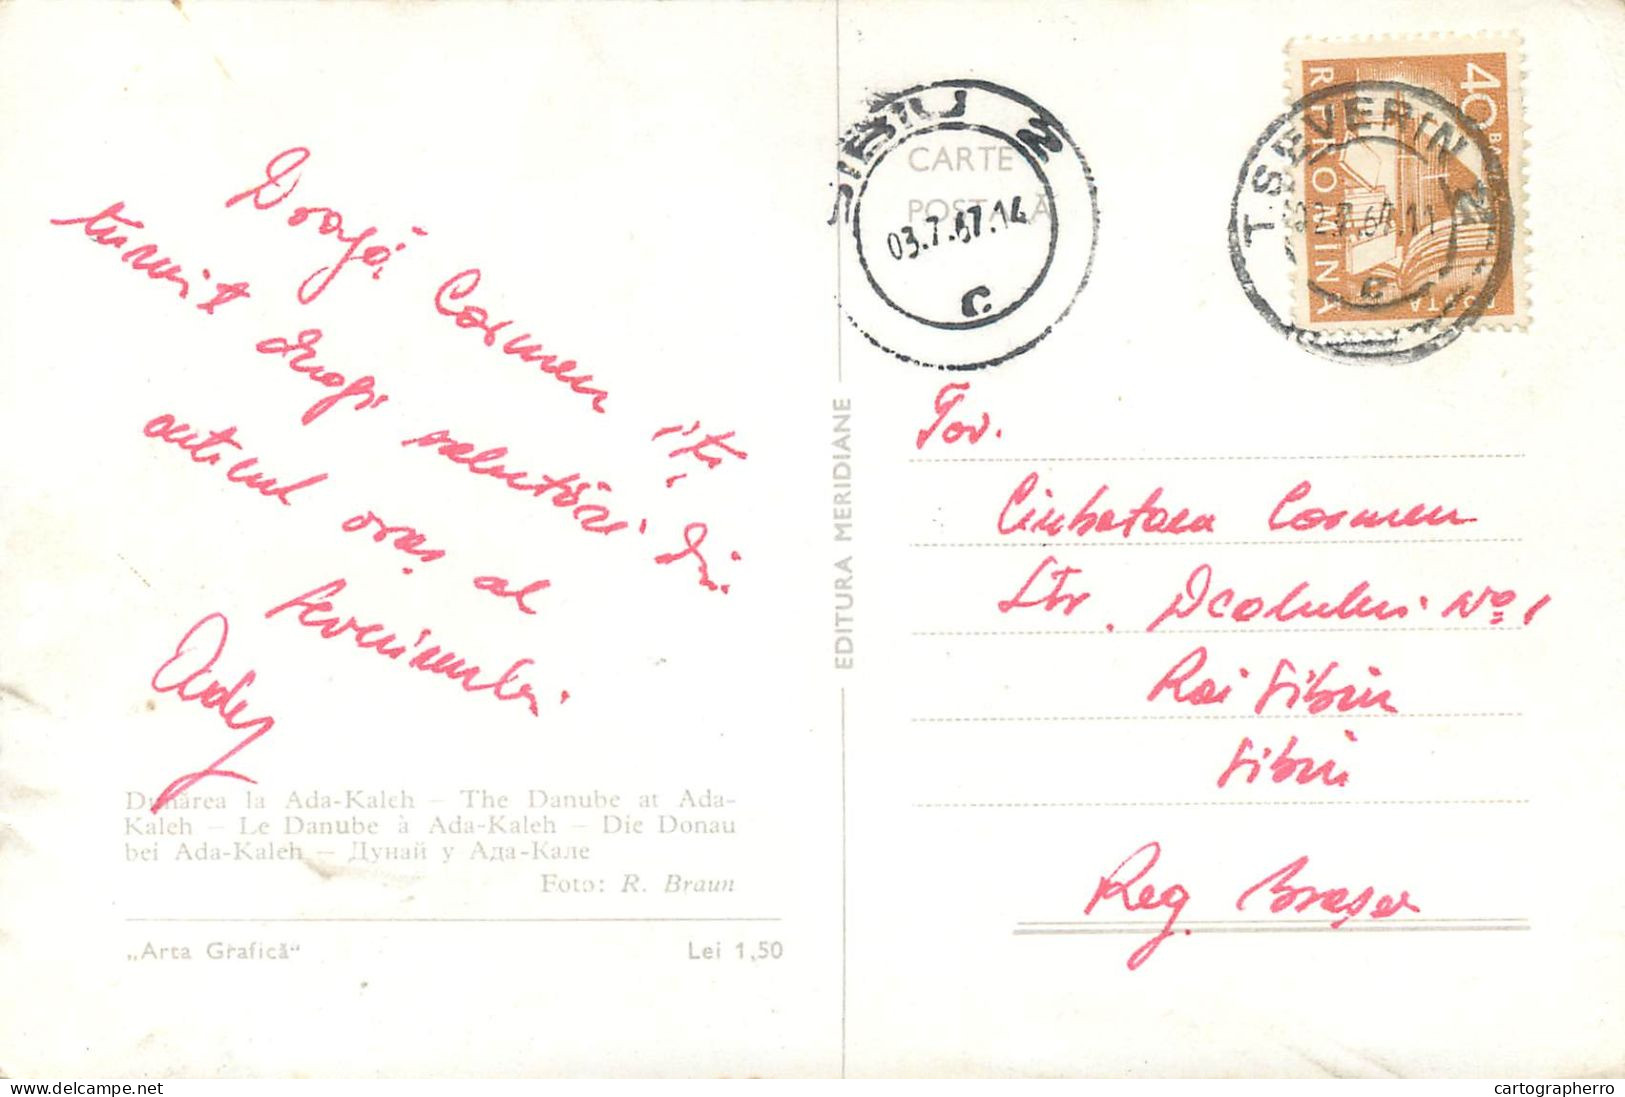 Dragă Carmen iți
trimit dragi salutări din
anticul oraș al
Severinului.
Ady
Dunărea la Ada-Kaleh — The Danube at Ada-
Kaleh — Le Danube à Ada-Kaleh — Die Donau
bei Ada-Kaleh — Дунай у Ада-Кале
Foto: R. Braun
„Arta Grafică“
Lei 1,50
EDITURA MERIDIANE
CARTE
POSTALĂ
SIBIU 2
03.7.67.14
C
40 BANI
R.P.ROMINA
POSTA
T. SEVERIN 2
67.11
C
Tov.
Ciubotaru Carmen
Str. Dealului No 1
Rai Sibiu
Sibiu
Reg. Brașov
cartographerro